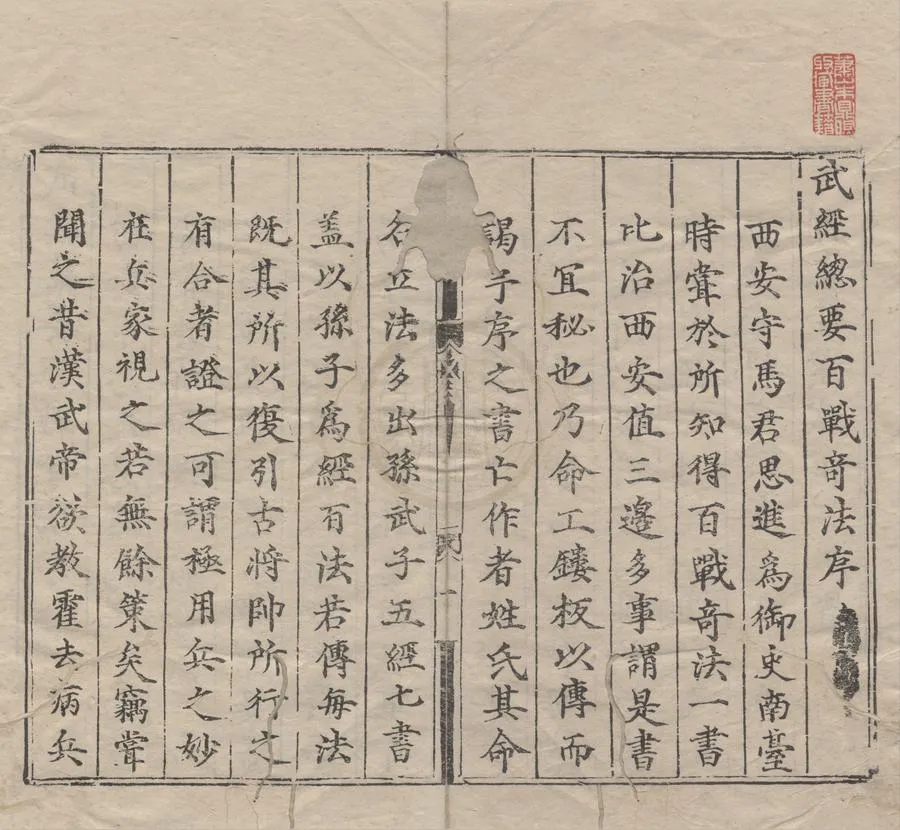 蕭山朱鼎煦
收藏書籍
武經總要百戰奇法序
西安守馬君思進爲御史南臺
時甞於所知得百戰奇法一書
比治西安值三邊多事謂是書
不冝秘也乃命工鏤板以傳而
謁予序之書亡作者姓氏其命
名立法多出孫武子五經七書
盖以孫子爲經百法若傳每法
既其所以復引古將帥所行之
有合者證之可謂極用兵之妙
在兵家視之若無餘策矣竊甞
聞之昔漢武帝欲教霍去病兵